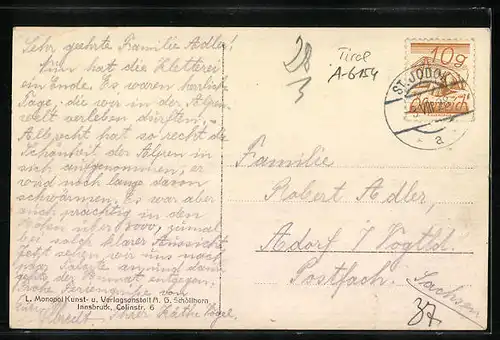 Sehr geehrte Familie Adler!
Nun hat die Kletterei
ein Ende. Es waren herrliche
Tage, die wir in der Alpen
welt verleben durften.
Albrecht hat so recht die
Schönheit der Alpen in
sich aufgenommen, er
wird noch lange davon
schwärmen. Es war aber
auch prächtig in den
Höhen über 3000, zumal
bei solch klarer Aussicht.
Jetzt sehen wir uns noch
der Heimat entgegen.
Frohe Feriengrüße von
Albrecht Ihrer Käthe Vogel.
L. Monopol Kunst- u. Verlagsanstalt A. G. Schöllhorn
Innsbruck, Colinstr. 6
28
3
Tirol
A-6154
10g
Österreich
ST. JODOK
a
Familie
Robert Adler,
Adorf i/Vogtld.
Postfach.
Sachsen
37